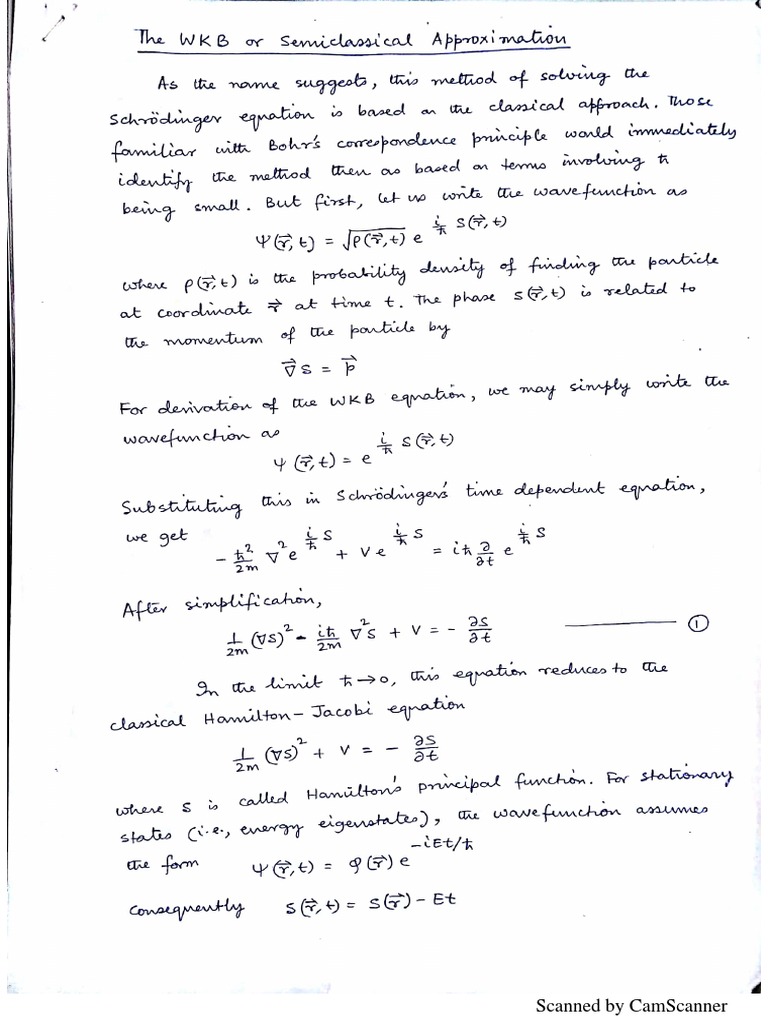 The WKB or Semiclassical Approximation
As the name suggests, this method of solving the
Schrödinger equation is based on the classical approach. Those
familiar with Bohr's correspondence principle would immediately
identify the method then as based on terms involving ħ
being small. But first, let us write the wavefunction as
Ψ(r⃗,t) = √ρ(r⃗,t) e^{i/ħ S(r⃗,t)}
where ρ(r⃗,t) is the probability density of finding the particle
at coordinate r⃗ at time t. The phase S(r⃗,t) is related to
the momentum of the particle by
∇⃗S = p⃗
For derivation of the WKB equation, we may simply write the
wavefunction as
ψ(r⃗,t) = e^{i/ħ S(r⃗,t)}
Substituting this in Schrödinger's time dependent equation,
we get
-ħ²/2m ∇² e^{i/ħ S} + V e^{i/ħ S} = iħ ∂/∂t e^{i/ħ S}
After simplification,
1/2m (∇S)² - iħ/2m ∇²S + V = - ∂S/∂t ——— ①
In the limit ħ→0, this equation reduces to the
classical Hamilton-Jacobi equation
1/2m (∇S)² + V = - ∂S/∂t
where S is called Hamilton's principal function. For stationary
states (i.e., energy eigenstates), the wavefunction assumes
the form ψ(r⃗,t) = φ(r⃗) e^{-iEt/ħ}
Consequently S(r⃗,t) = S(r⃗) - Et
Scanned by CamScanner